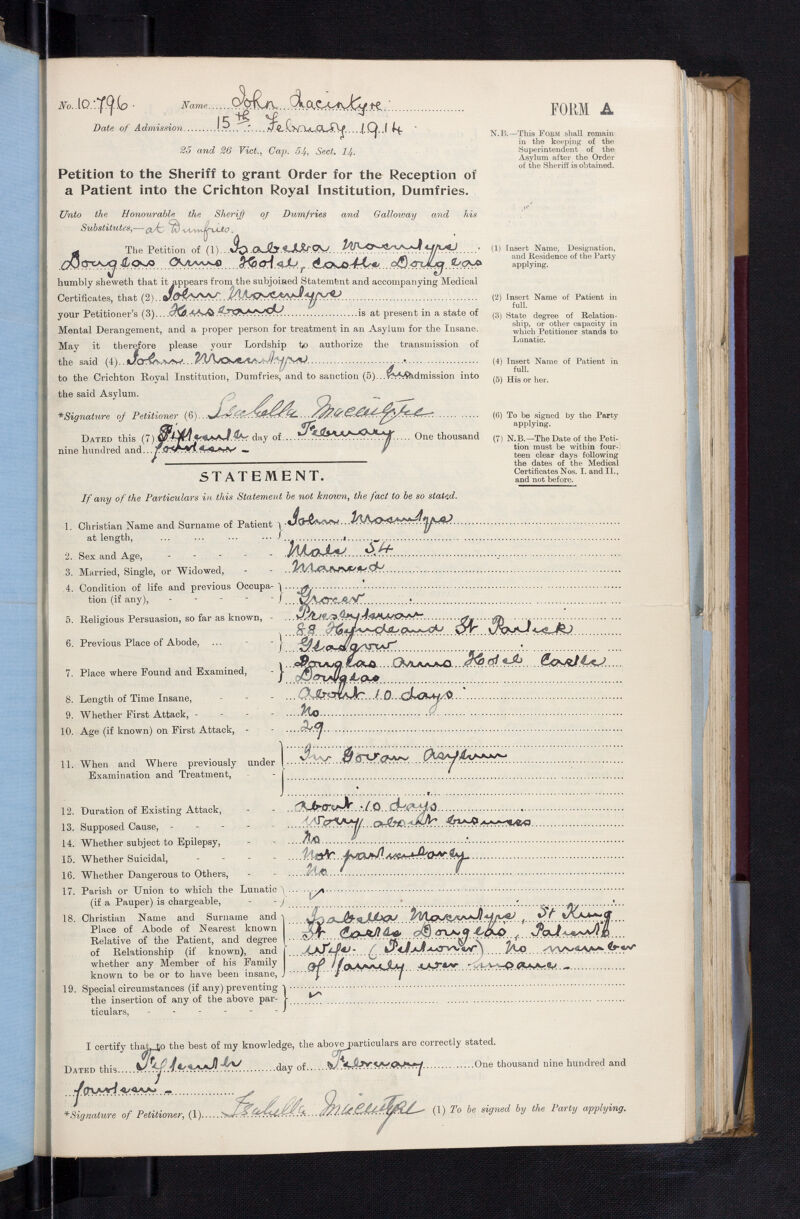 No. 10,796. Name John Macintyre
Date of Admission 15th February 1914
25 and 26 Vict., Cap. 54, Sect. 14.
FORM A
N.B.—This FORM shall remain
in the keeping of the
Superintendent of the
Asylum after the Order
of the Sheriff is obtained.
Petition to the Sheriff to grant Order for the Reception of
a Patient into the Crichton Royal Institution, Dumfries.
Unto the Honourable the Sheriff of Dumfries and Galloway and his
Substitutes,—at Dumfries.
The Petition of (1) Isabella Macintyre
Douglas Arms Hotel, Castle Douglas
(1) Insert Name, Designation,
and Residence of the Party
applying.
humbly sheweth that it appears from the subjoined Statemtnt and accompanying Medical
Certificates, that (2) John Macintyre
(2) Insert Name of Patient in
full.
your Petitioner's (3) Husband is at present in a state of
Mental Derangement, and a proper person for treatment in an Asylum for the Insane.
(3) State degree of Relation-
ship, or other capacity in
which Petitioner stands to
Lunatic.
May it therefore please your Lordship to authorize the transmission of
the said (4) John Macintyre
(4) Insert Name of Patient in
full.
to the Crichton Royal Institution, Dumfries, and to sanction (5) his admission into
the said Asylum.
(5) His or her.
*Signature of Petitioner (6) Isabella Macintyre
(6) To be signed by the Party
applying.
DATED this (7) Fifteenth day of February One thousand
nine hundred and fourteen –
(7) N.B.—The Date of the Peti-
tion must be within four-
teen clear days following
the dates of the Medical
Certificates Nos. I. and II.,
and not before.
STATEMENT.
If any of the Particulars in this Statement be not known, the fact to be so stated.
1. Christian Name and Surname of Patient
at length, ... ... ... ... John Macintyre
2. Sex and Age, - - - - - Male 54
3. Married, Single, or Widowed, - - Married
4. Condition of life and previous Occupa-
tion (if any), - - - - - Grocer
5. Religious Persuasion, so far as known, - Presbyterian
6. Previous Place of Abode, ... - 88 Hyndland St Partick
Glasgow
7. Place where Found and Examined, - Douglas Arms Hotel Castle
Douglas
8. Length of Time Insane, - - About 10 days
9. Whether First Attack, - - - - No
10. Age (if known) on First Attack, - - 29
11. When and Where previously under
Examination and Treatment, - In Govan Asylum
12. Duration of Existing Attack, - - About 10 days
13. Supposed Cause, - - - - - Worry about business
14. Whether subject to Epilepsy, - - No
15. Whether Suicidal, - - - - Not particularly
16. Whether Dangerous to Others, - - No
17. Parish or Union to which the Lunatic
(if a Pauper) is chargeable, - - ✓
18. Christian Name and Surname and
Place of Abode of Nearest known
Relative of the Patient, and degree
of Relationship (if known), and
whether any Member of his Family
known to be or to have been insane,
Isabella Macintyre, St King
St Castle Douglas, Patient's
wife. (Petitioner) No member
of family ever insane –
19. Special circumstances (if any) preventing
the insertion of any of the above par-
ticulars, - - - - - - ✓
I certify that, to the best of my knowledge, the above particulars are correctly stated.
DATED this Fifteenth day of February One thousand nine hundred and
fourteen –
*Signature of Petitioner, (1) Isabella Macintyre (1) To be signed by the Party applying.